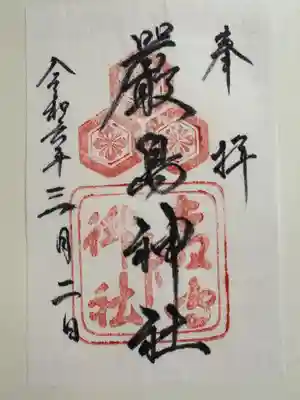 奉拝
嚴島神社
令和六年三月二日